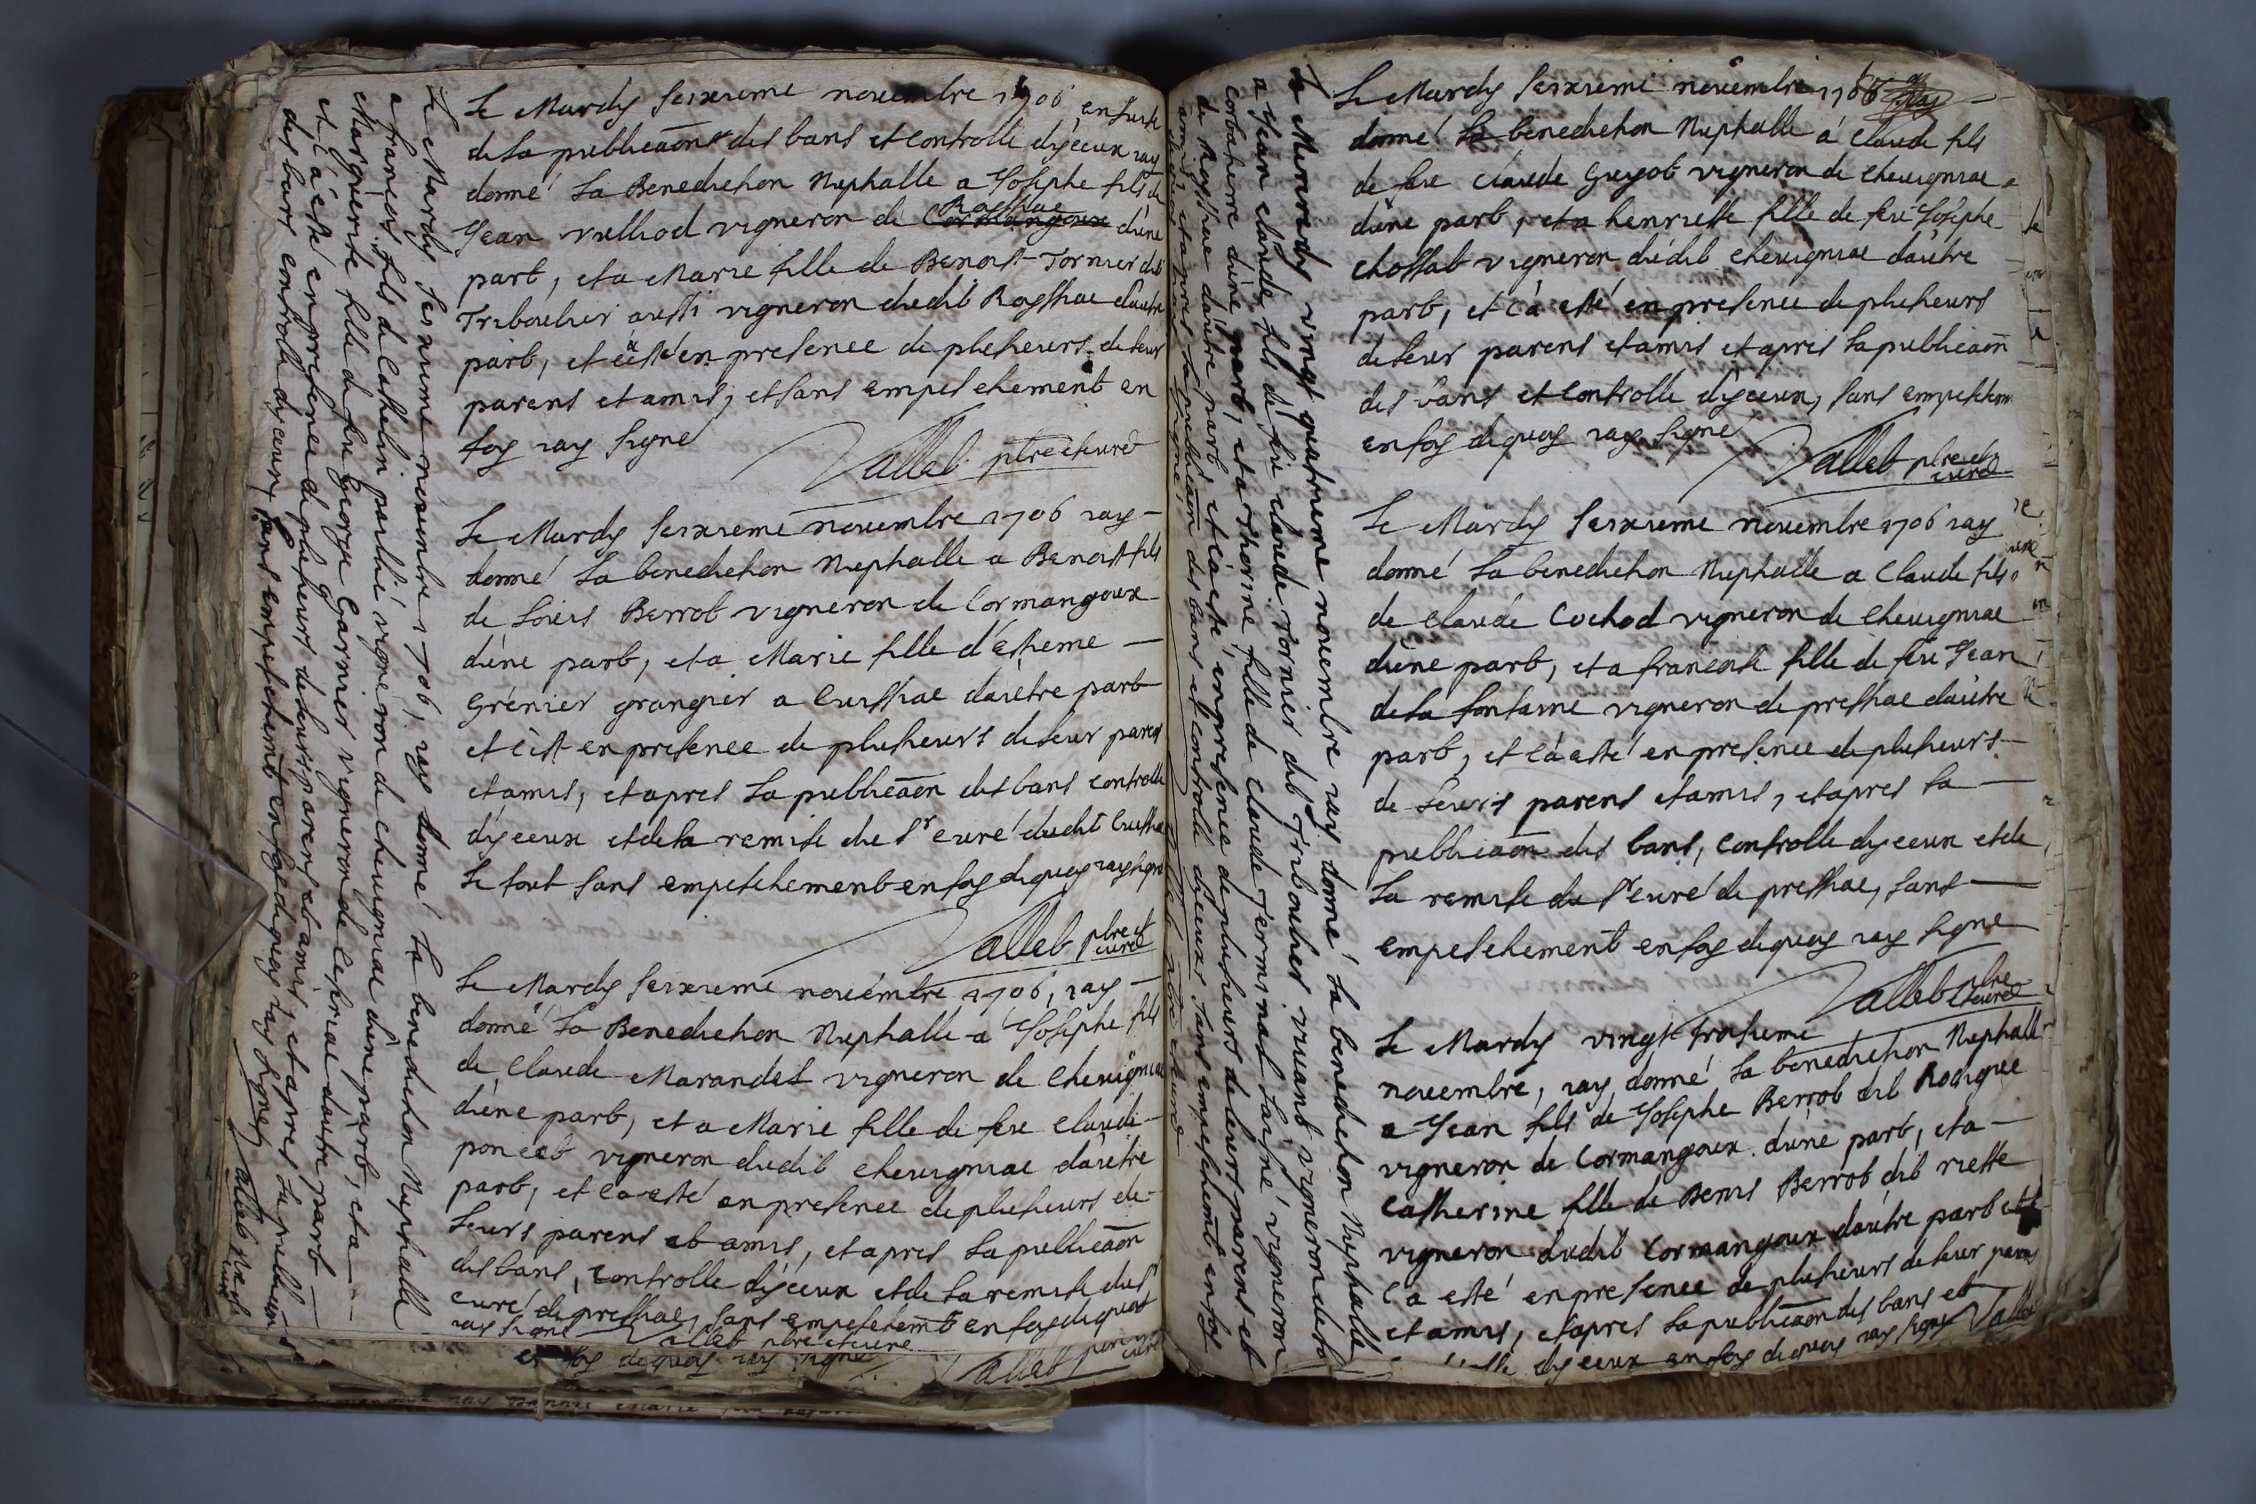 Le Mardy seixieme novembre 1706 ensuite
de la publicaōn des bans et controlle dyceux iay
donné la Benediction Nuptialle a Josephe fils de
Jean vulliod vigneron de Cormangoux Rossiac d'une
part, et a Marie fille de Benoist Tornier dit
Tribouher aussi vigneron dudit Rossiac d'autre
part, et c'a esté en presence de plusieurs de leur
parens et amis, et sans empeschement en
foy iay signe
Vallet ptre et curé
Le Mardy seixieme novembre 1706 iay
donné la benediction Nuptialle a Benoist fils
de Loüis Berrot vigneron de Cormangoux
d'une part, et a Marie fille d'Estieme
Grénier grangier a Cuissiac d'autre part
et c'est en presence de plusieurs de leur parens
et amis, et apres la publicaōn des bans controlle
dyceux et de la remise du Sr curé dudit Cuissia
le tout sans empeschement en foy dequoy iay signe
Vallet ptre et curé
Le Mardy seixieme novembre 1706, iay
donné la Benediction Nuptialle a Josephe fils
de Claude Marandet vigneron de Cheuigniac
d'une part, et a Marie fille de feu Claude
poncet vigneron dudit cheuigniac d'autre
part, et c'a esté en presence de plusieurs de
leurs parens et amis, et apres la publicaōn
des bans, controlle dyceux et de la remise du Sr
curé de pressiac, sans empeschem̄t en foy dequoy
iay signe Vallet ptre et curé
en foy dequoy iay signe
Vallet
Le Mardy seixieme novembre 1706, iay donné la benediction Nuptialle
a francois fils de Cathelin parthié vigneron de cheuigniac d'une part, et a
Marguerite fille de feu George Garnier vigneron de d'autre part
et c'a esté en presence de plusieurs de leurs parens et amis, et apres la publicaōn
des bans controlle dyceux, sans empeschement en foy dequoy iay signé Vallet ptre et curé
Le Mercredy vingt quatrieme novembre iay donné la benediction Nuptialle
a Jean claude fils de feu claude Tornier dit Tribouher vivant vigneron de
d'une part, et a Thorine fille de claude ferminat l'aisné vigneron
de Rossiac d'autre part et c'a esté en presence de plusieurs de leurs parens et
amis, et apres la publicaōn des bans et controlle diceux sans empeschem̄t en foy
Le Mardy seixieme novembre 1706 iay
donné la benediction Nuptialle á Claude fils
de feu Claude Guyot vigneron de cheuigniac
d'une part, et a henriette fille de feu Josephe
chossat vigneron dudit cheuigniac d'autre
part, et c'a esté en presence de plusieurs
de leur parens et amis et apres la publicaōn
des bans et controlle dyceux, sans empeschem
en foy dequoy iay signe
Vallet ptre et curé
Le Mardy seixieme novembre 1706 iay
donné la benediction Nuptialle a Claude fils
de Claude Cochod vigneron de Cheuigniac
d'une part, et a francoise fille de feu Jean
de la fontaine vigneron de pressiac d'autre
part, et c'a esté en presence de plusieurs
de leurs parens et amis, et apres la
publicaōn des bans, controlle dyceux et de
la remise du Sr curé de pressiac, sans
empeschement en foy dequoy iay signe
Vallet ptre et curé
Le Mardy vingt troisieme
novembre, iay donné la benediction Nuptialle
a Jean fils de Josephe Berrot dit Rodigue
vigneron de Cormangoux d'une part, et a
Catherine fille de Denis Berrot dit riette
vigneron dudit Cormangoux d'autre part et
c'a esté en presence de plusieurs de leur parens
et amis, et apres la publicaōn des bans et
dyceux en foy dequoy iay signe Vallet